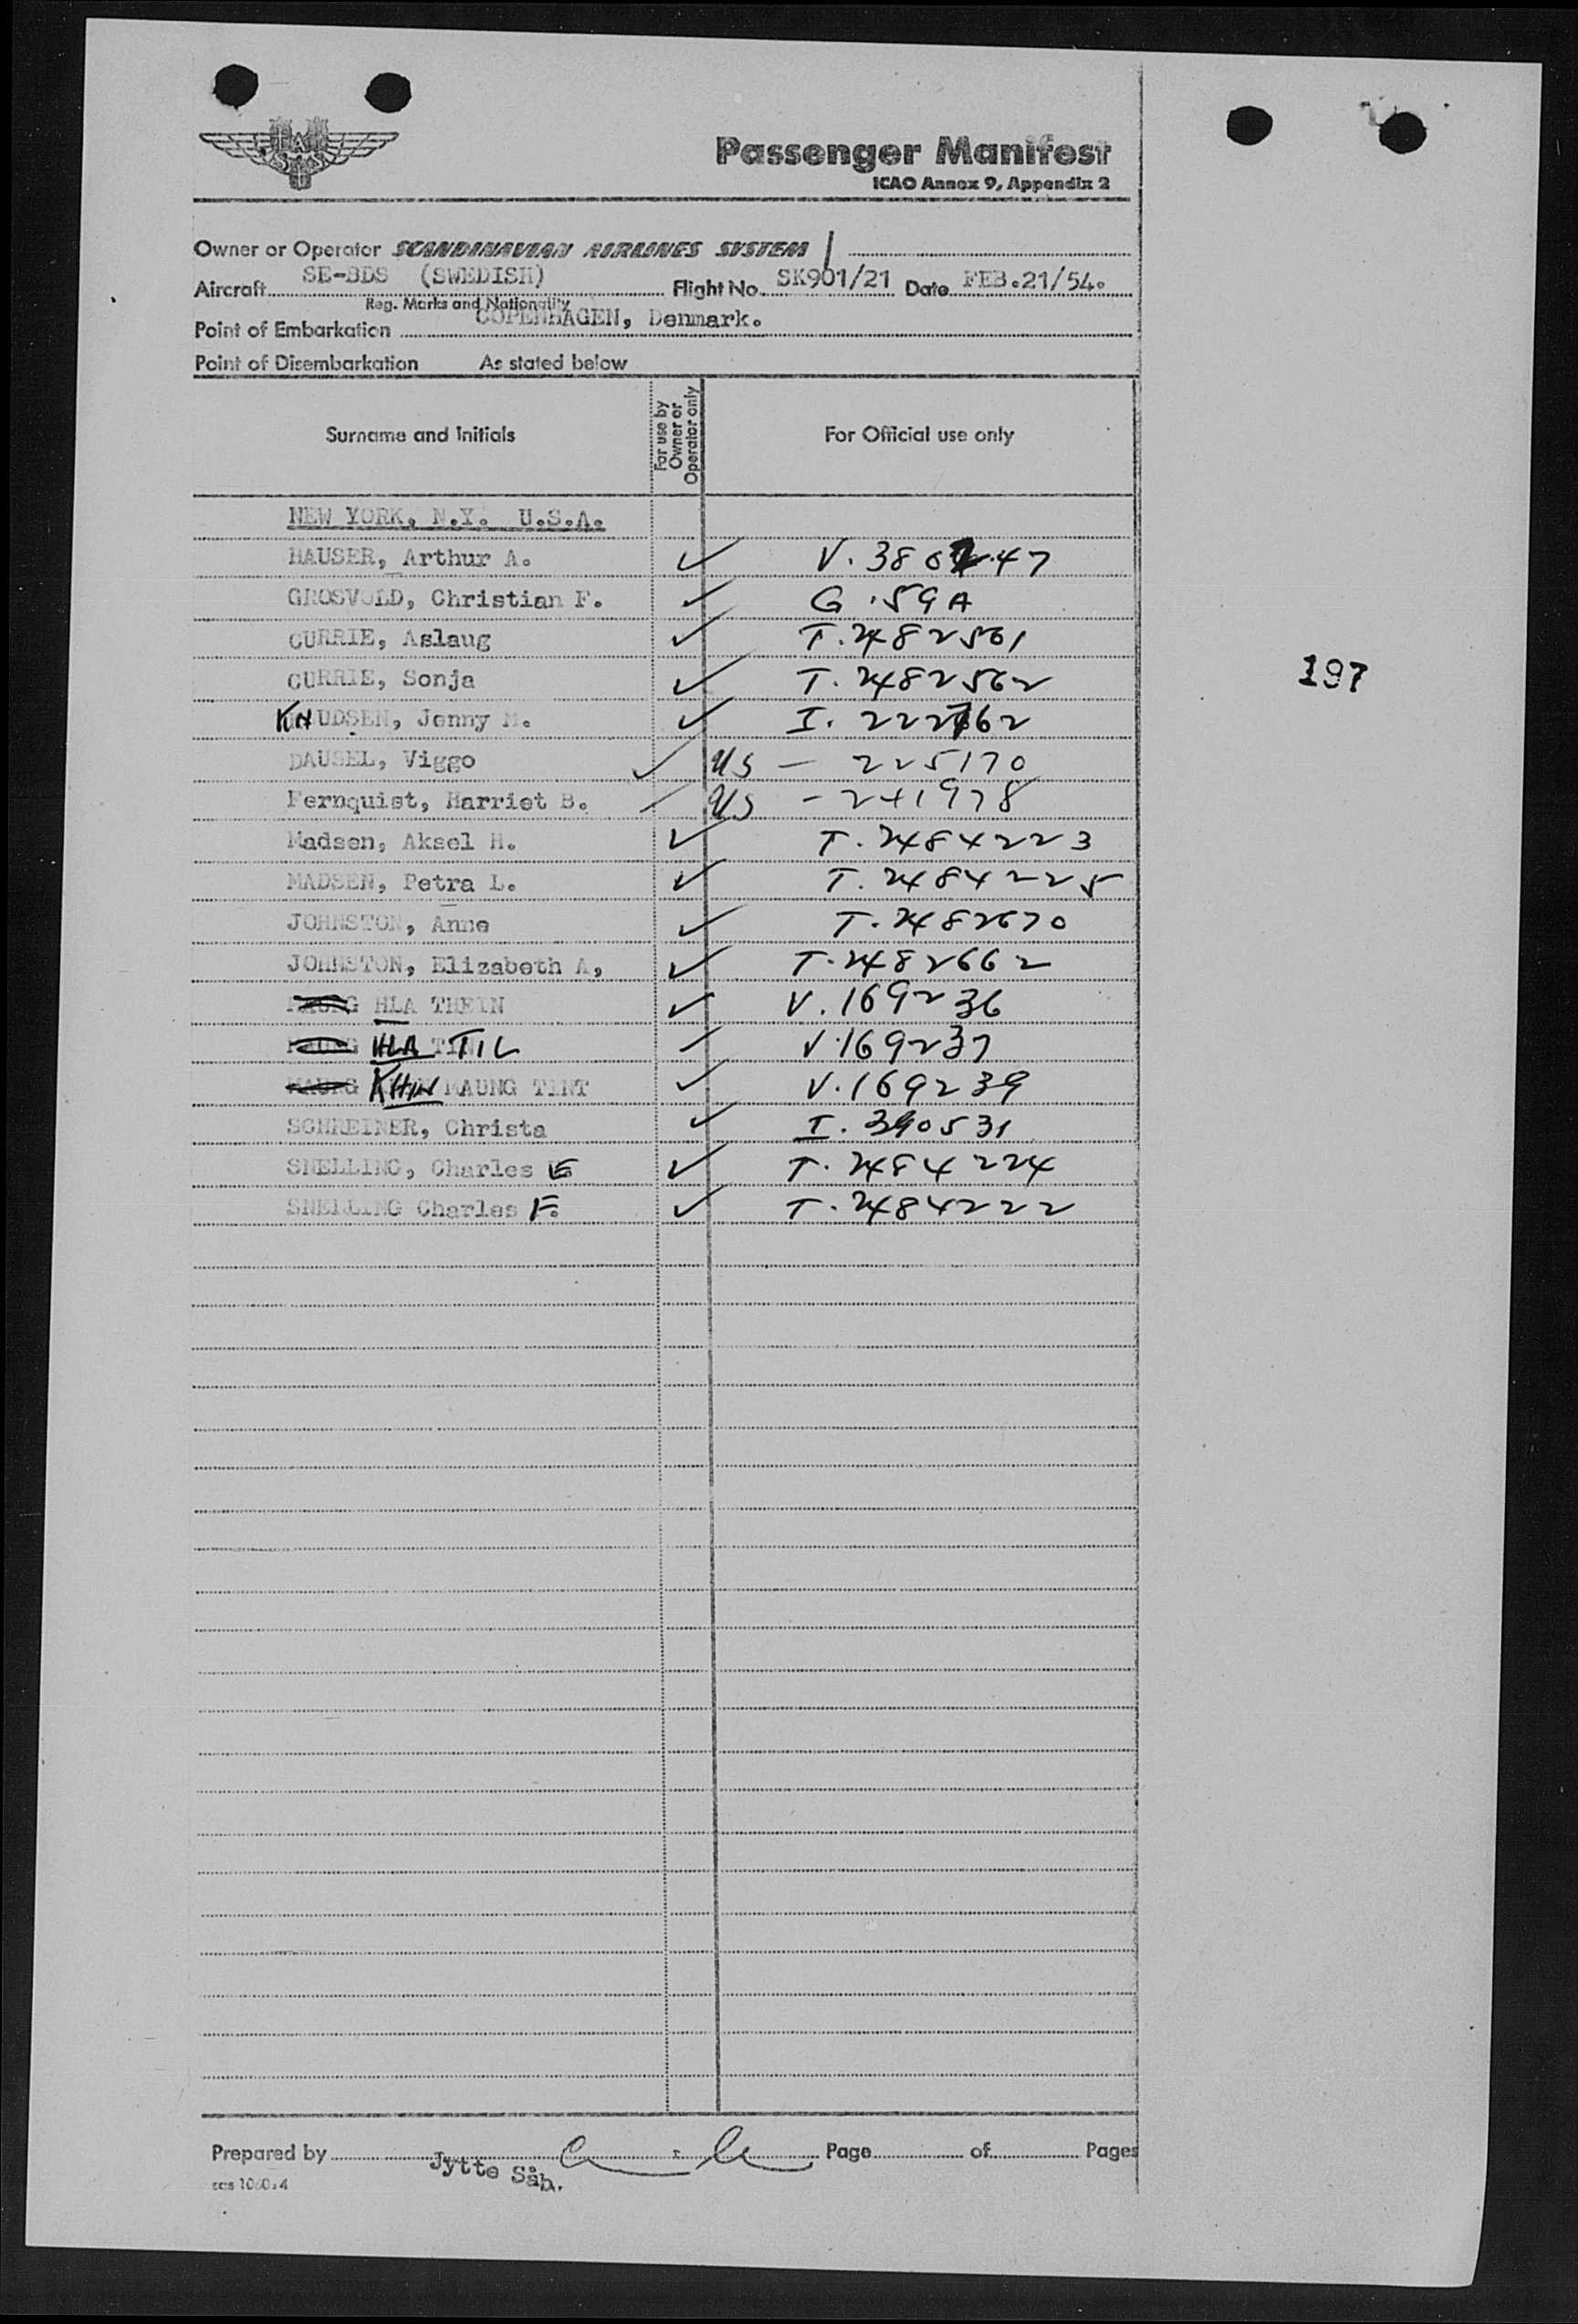 SAS
Passenger Manifest
ICAO Annex 9, Appendix 2
Owner or Operator SCANDINAVIAN AIRLINES SYSTEM
Aircraft SE-BDS (SWEDISH) Flight No. SK901/21 Date FEB.21/54.
Reg. Marks and Nationality
Point of Embarkation COPENHAGEN, Denmark.
Point of Disembarkation As stated below
Surname and Initials For use by Owner or Operator only For Official use only
NEW YORK, N.Y. U.S.A.
HAUSER, Arthur A. ✓ V. 47
GROSVOLD, Christian F. ✓ G .59A
CURRIE, Aslaug ✓ T. 2482561
CURRIE, Sonja ✓ T. 2482562
197
KNUDSEN, Jenny M. ✓ I. 222762
DAUSEL, Viggo ✓ US - 225170
Fernquist, Harriet B. US - 241978
Madsen, Aksel H. ✓ T. 2484223
MADSEN, Petra L. ✓ T. 2484225
JOHNSTON, Anne ✓ T. 2482670
JOHNSTON, Elizabeth A, ✓ T. 2482662
MAUNG HLA THEIN ✓ V. 169236
MAUNG HLA TIL V. 169237
MAUNG KHIN MAUNG TINT ✓ V. 169239
SCHREINER, Christa ✓ I. 390531
SNELLING, Charles E ✓ T. 2484224
SNELLING Charles F. ✓ T. 2484222
Prepared by Jytte Såb. Page of Pages